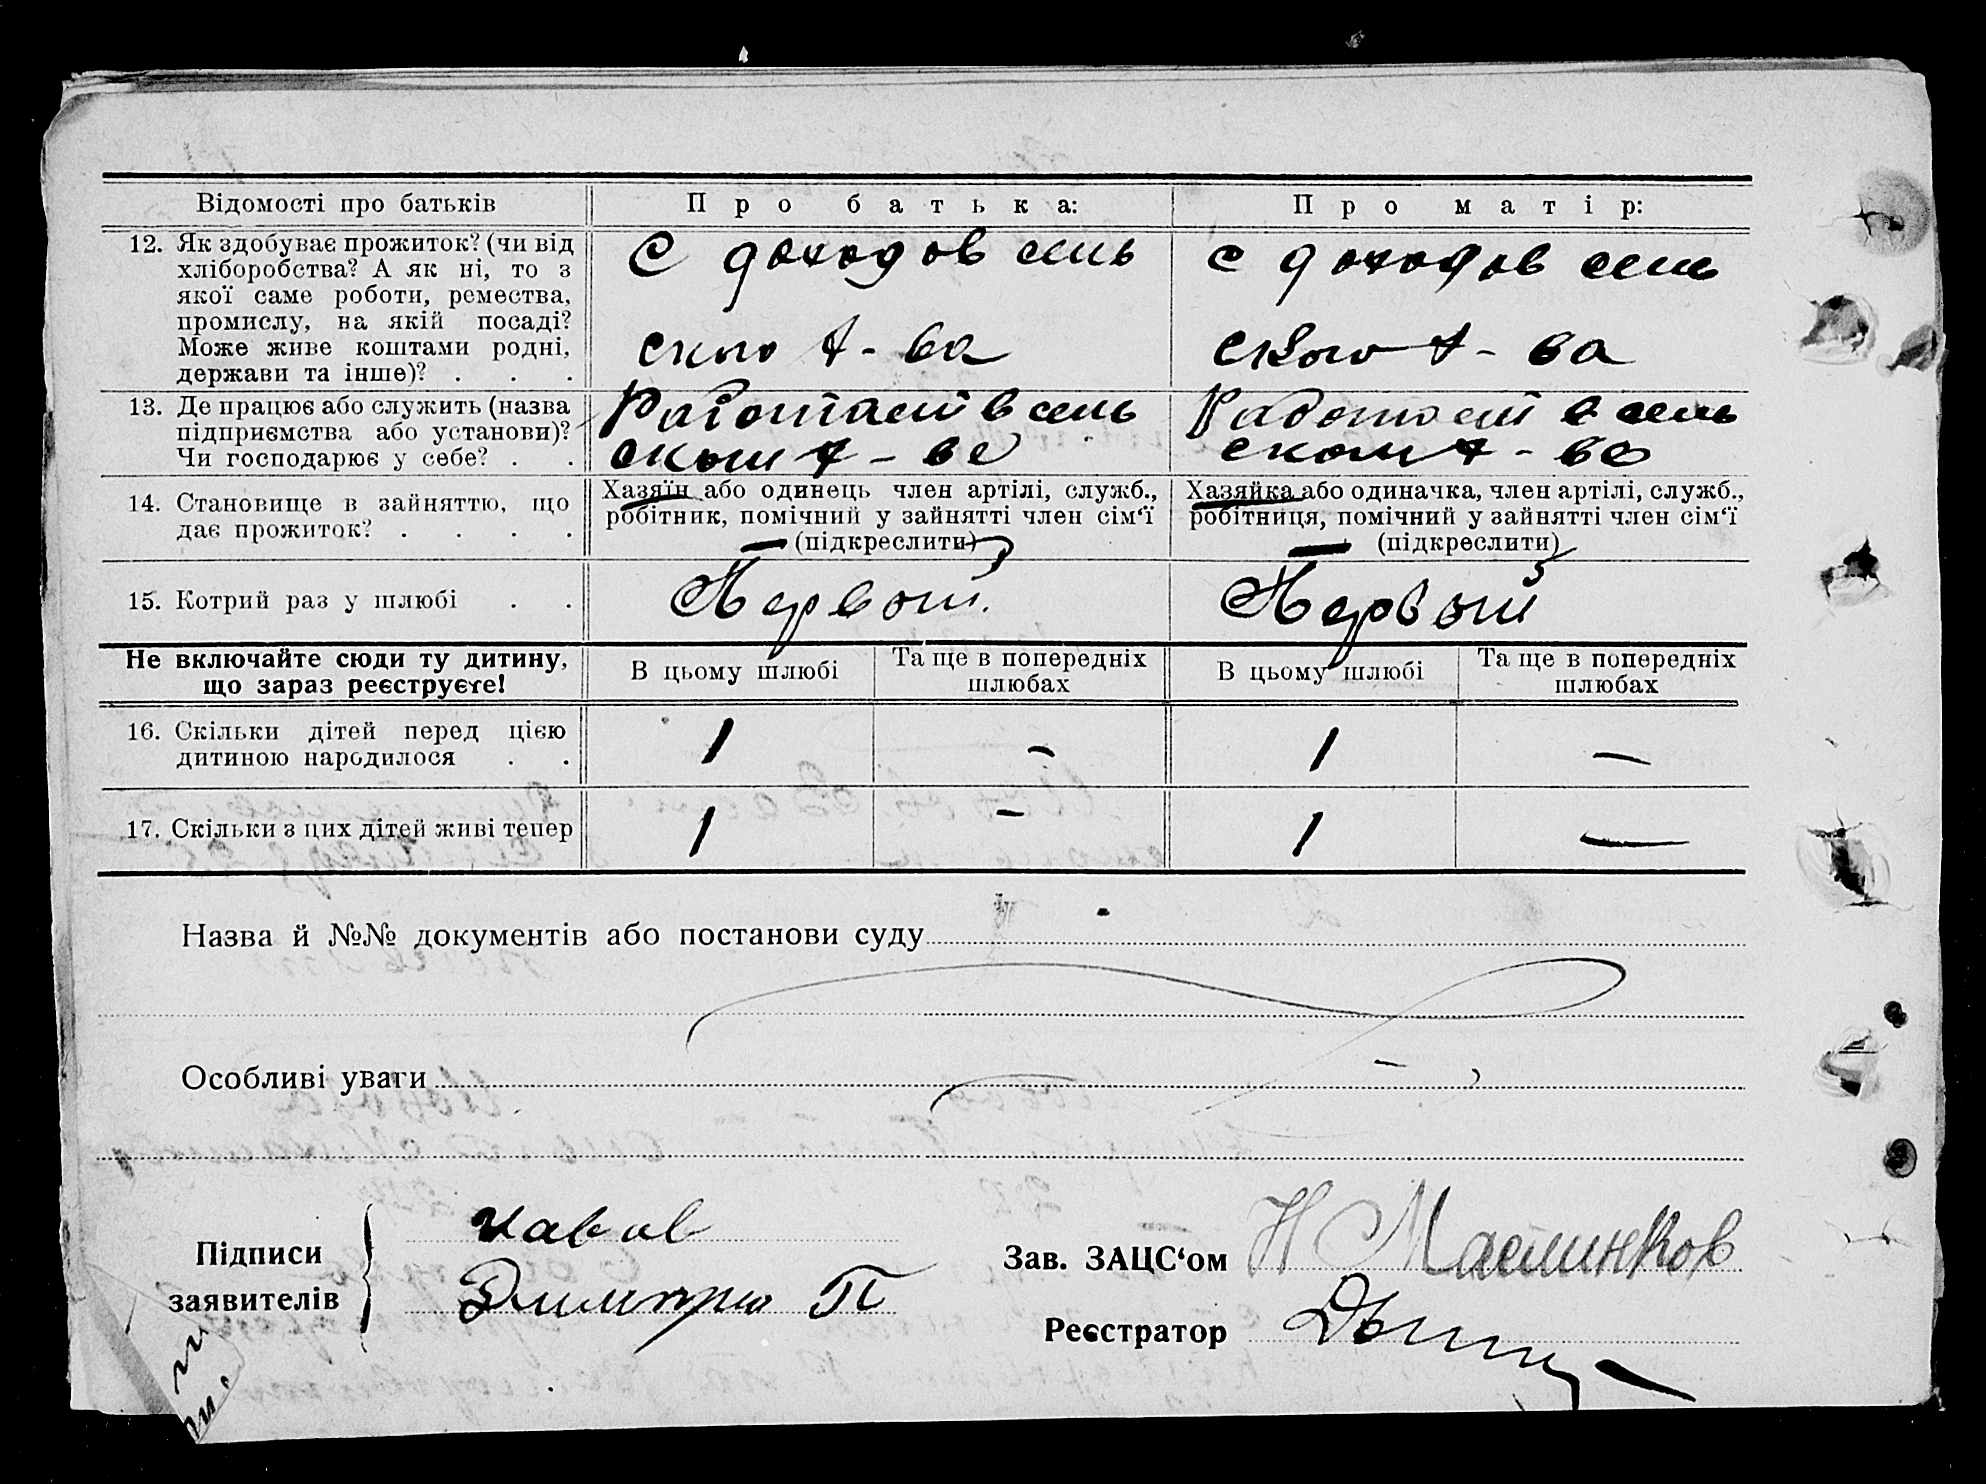 Відомості про батьків
Про батька:
Про матір:
12. Як здобуває прожиток? (чи від
хліборобства? А як ні, то з
якої саме роботи, ремества,
промислу, на якій посаді?
Може живе коштами родні,
держави та інше)? . . .
С доходов сель
ского х-ва
с доходов сель
ского х-ва
13. Де працює або служить (назва
підприємства або установи)?
Чи господарює у себе? . .
Работает в сель
ском х-ве
Работает в сель
ском х-ве
14. Становище в зайняттю, що
дає прожиток? . . . .
Хазяїн або одинець член артілі, служб.,
робітник, помічний у зайнятті член сім‘ї
(підкреслити)
Хазяйка або одиначка, член артілі, служб.,
робітниця, помічний у зайнятті член сім‘ї
(підкреслити)
15. Котрий раз у шлюбі . .
Первый
Первый
Не включайте сюди ту дитину,
що зараз реєструєте!
В цьому шлюбі
Та ще в попередніх
шлюбах
В цьому шлюбі
Та ще в попередніх
шлюбах
16. Скільки дітей перед цією
дитиною народилося . .
1
-
1
-
17. Скільки з цих дітей живі тепер
1
-
1
-
Назва й №№ документів або постанови суду
Особливі уваги
Підписи
заявителів
Димитрии П
Зав. ЗАЦС‘ом
Н Маслинков
Реєстратор